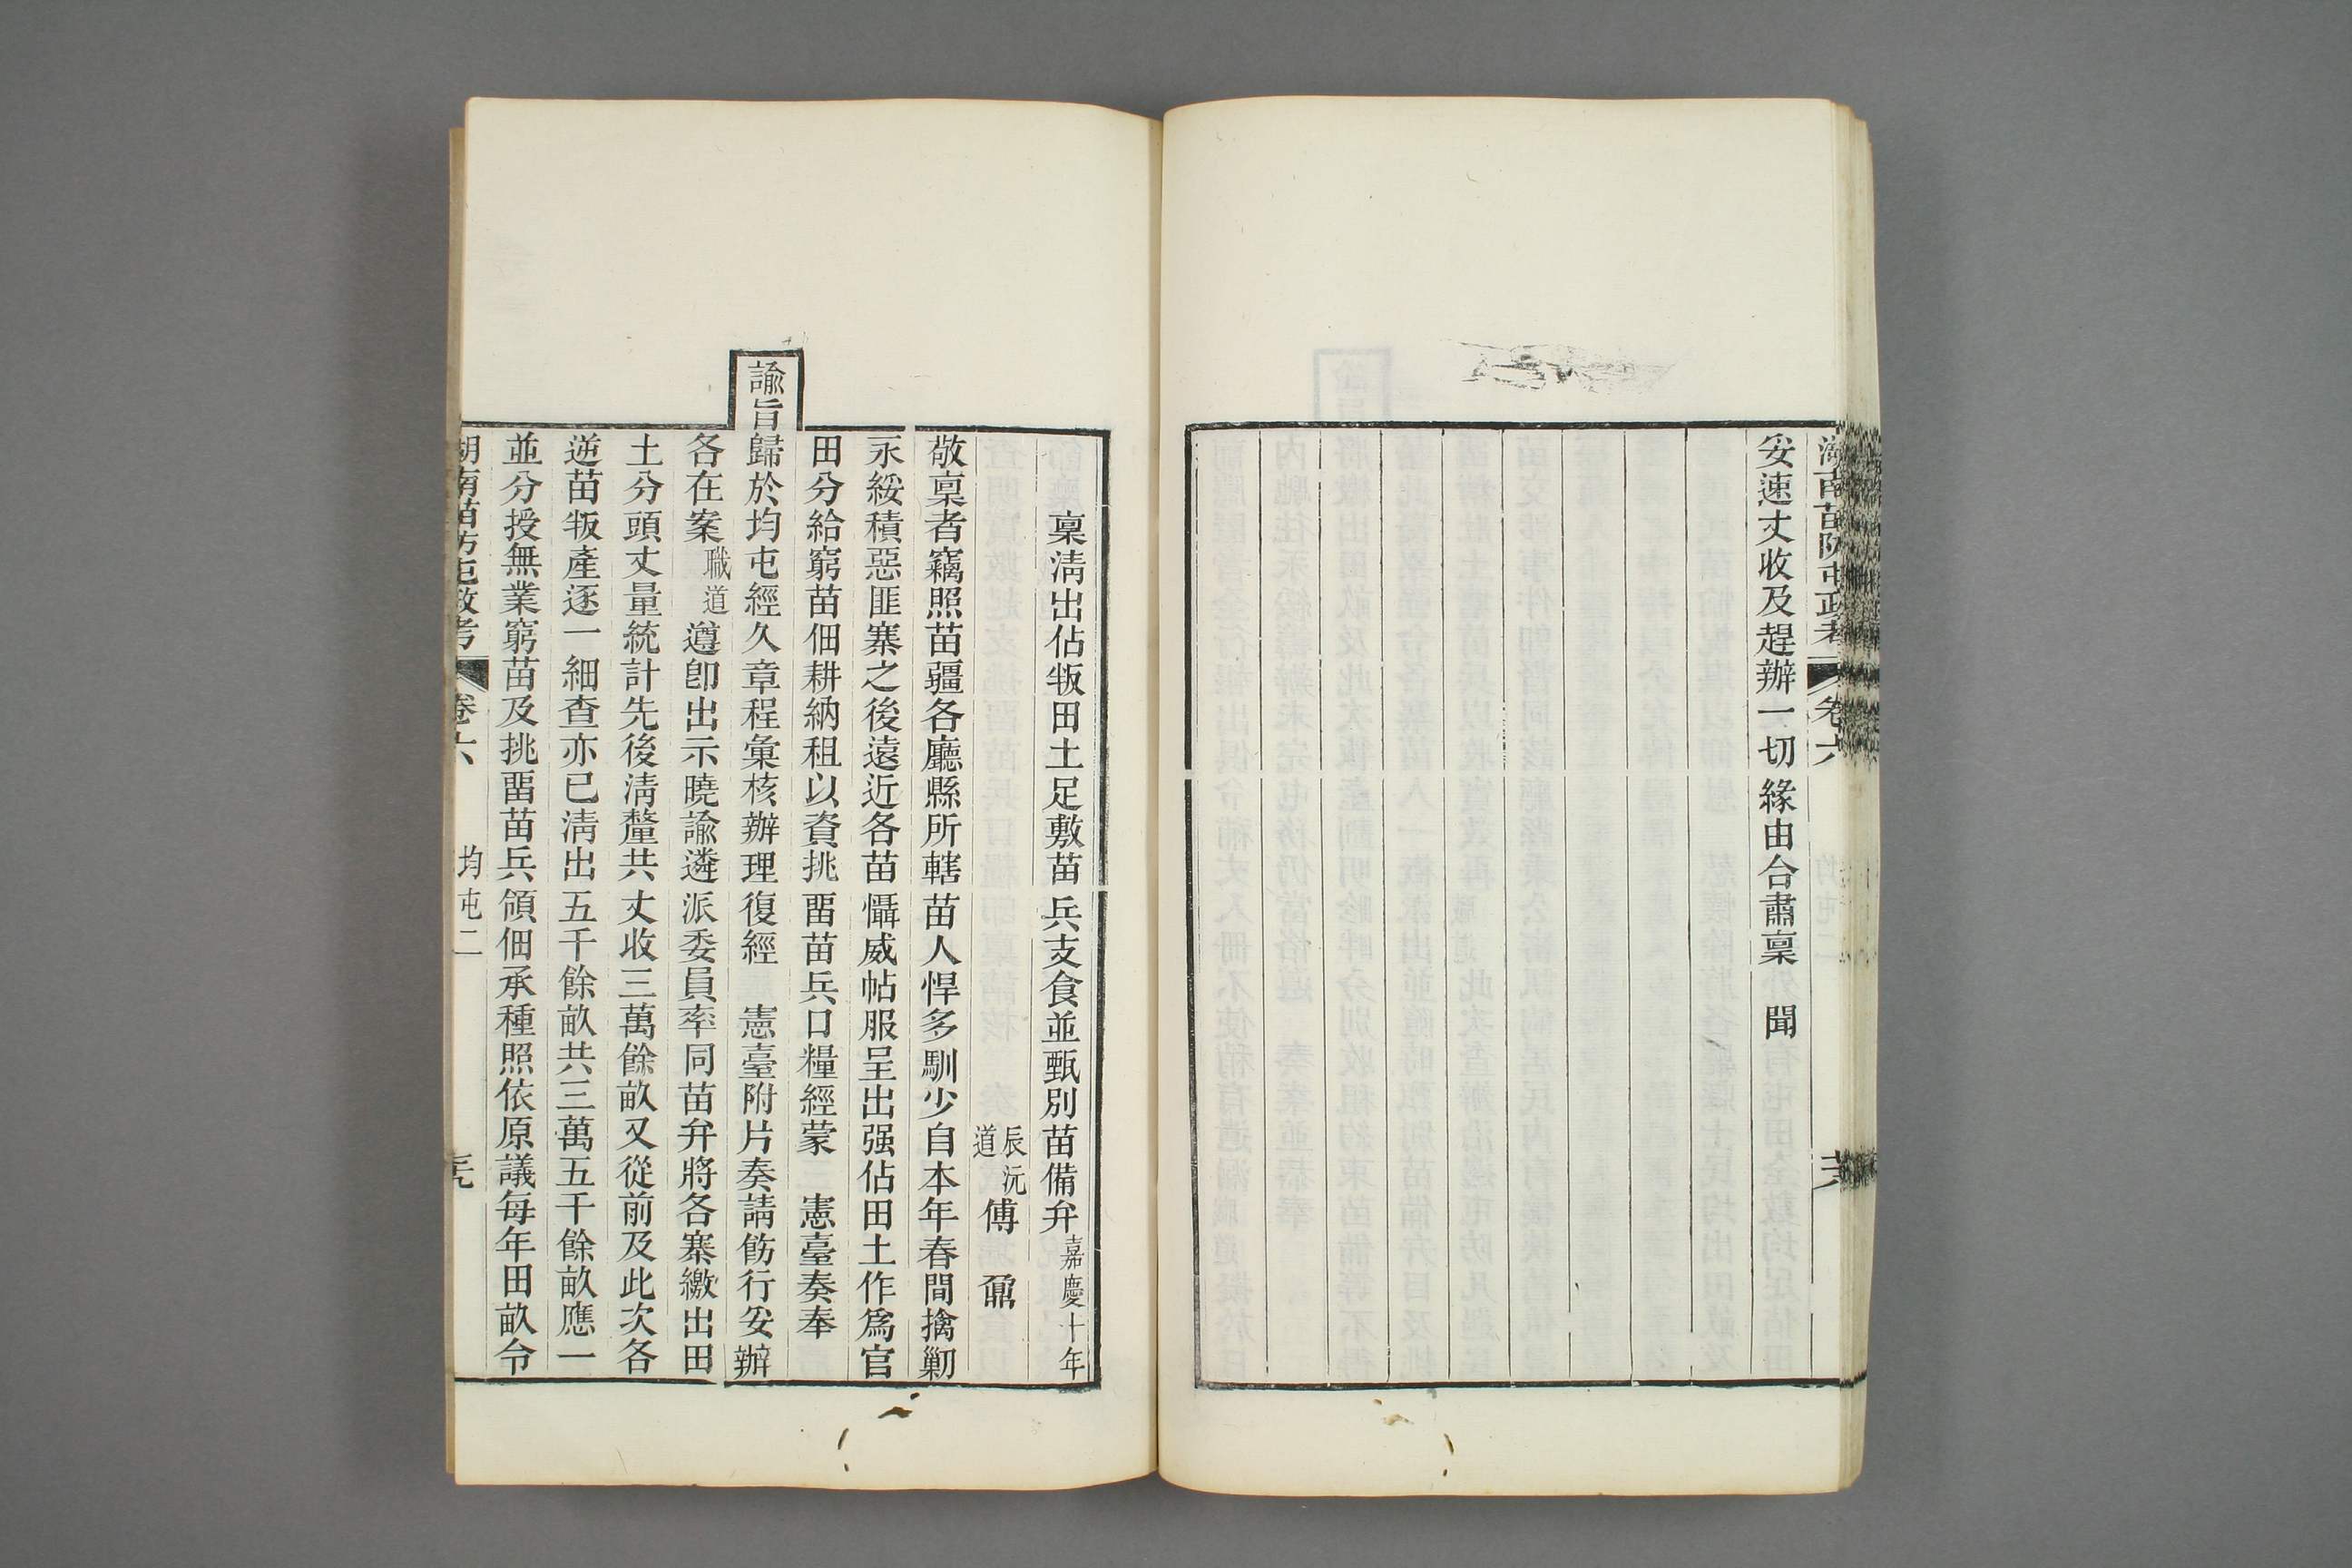 湖南苗防屯政考 卷六
妥速丈收及趕辦一切緣由合肅稟 聞
稟淸出佔叛田土足敷苗兵支食並甄別苗備弁嘉慶十年
辰沅道傅 鼐
敬稟者竊照苗疆各廳縣所轄苗人悍多馴少自本年春間擒剿
永綏積惡匪寨之後遠近各苗懾威帖服呈出强佔田土作爲官
田分給窮苗佃耕納租以資挑畱苗兵口糧經蒙 憲臺奏奉
諭旨歸於均屯經久章程彙核辦理復經 憲臺附片奏請飭行妥辦
各在案職道遵卽出示曉諭遴派委員率同苗弁將各寨繳出田
土分頭丈量統計先後淸釐共丈收三萬餘畝又從前及此次各
逆苗叛產逐一細查亦已淸出五千餘畝共三萬五千餘畝應一
並分授無業窮苗及挑畱苗兵領佃承種照依原議每年田畝令
湖南苗防屯政考 卷六 均屯二